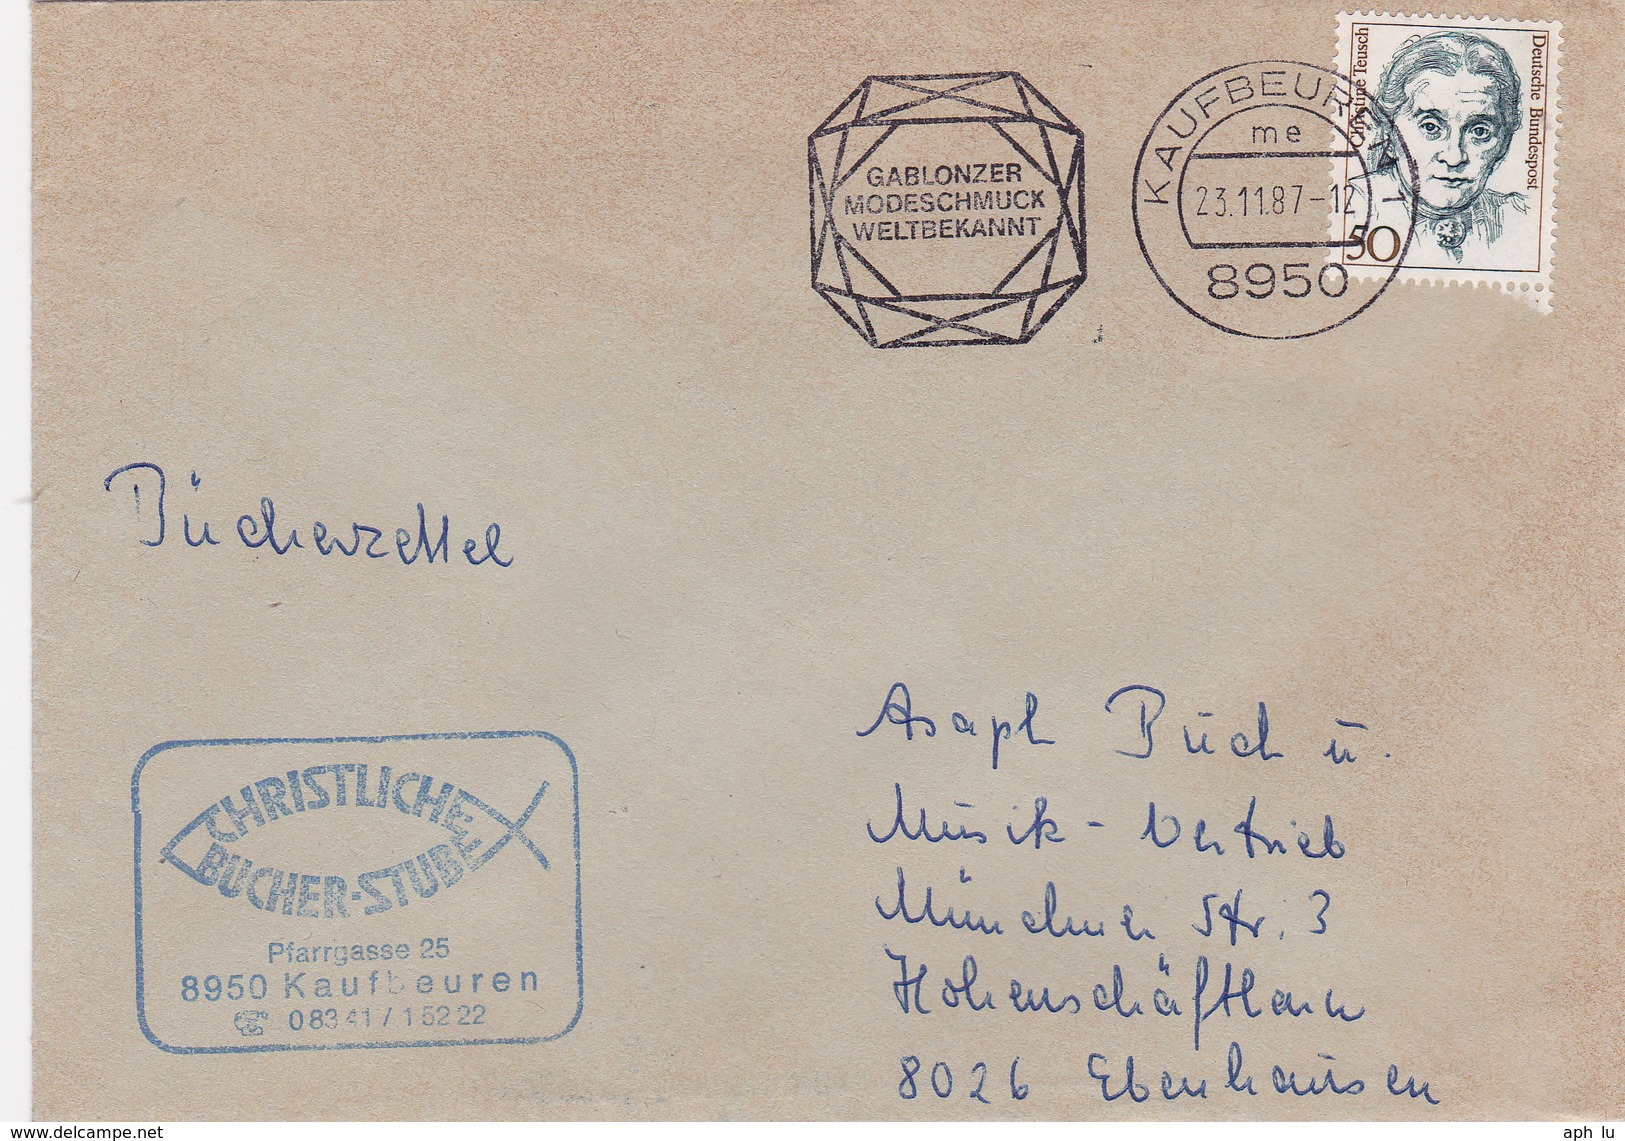 Deutsche Bundespost
Christine Teusch
50
KAUFBEUREN 1
me
23.11.87-12
8950
GABLONZER
MODESCHMUCK
WELTBEKANNT
Bücherzettel
CHRISTLICHE
BÜCHER-STUBE
Pfarrgasse 25
8950 Kaufbeuren
08341/15222
Asaph Buch u.
Musik-Vertrieb
Münchner Str. 3
Hohenschäftlarn
8026 Ebenhausen
www.delcampe.net
aph lu